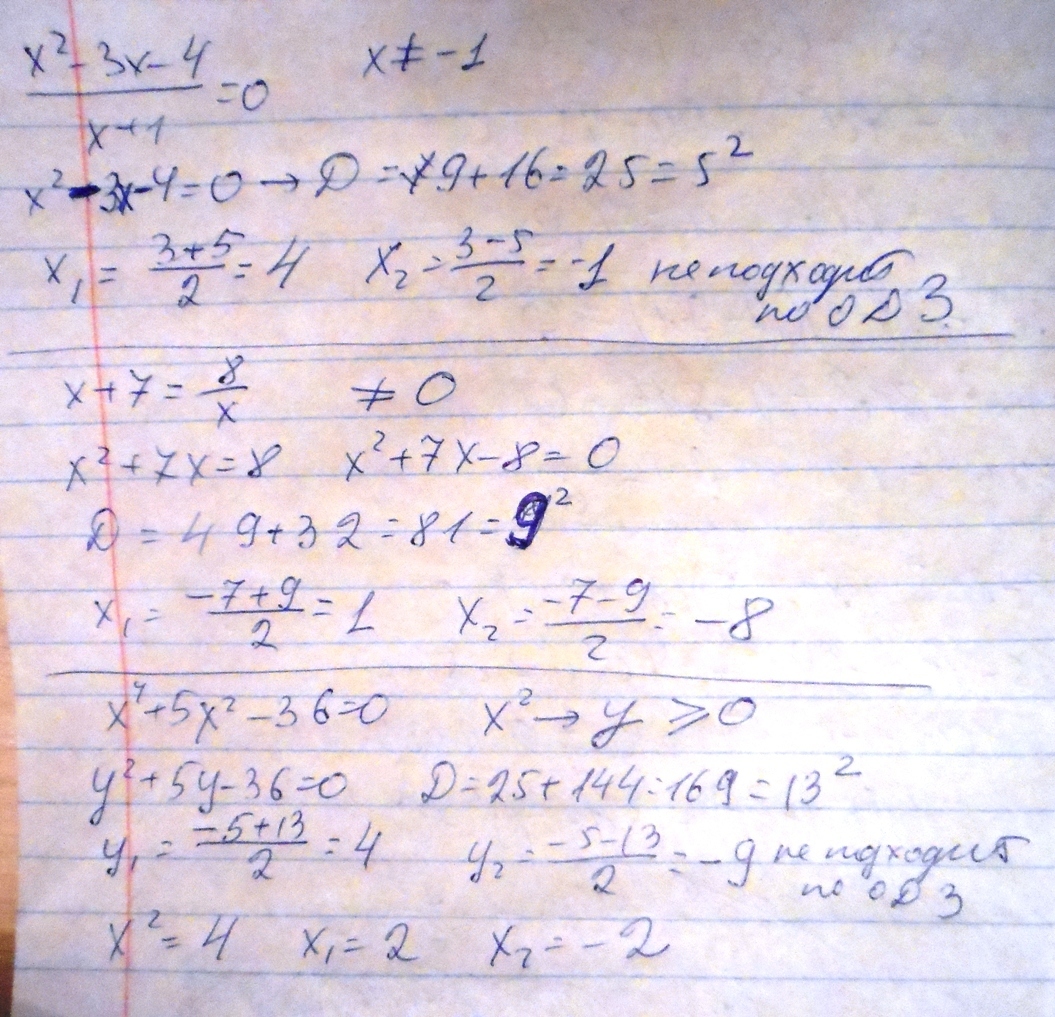 x² - 3x - 4 / x + 1 = 0 x ≠ -1
x² - 3x - 4 = 0 → D = 9 + 16 = 25 = 5²
x₁ = (3+5)/2 = 4 x₂ = (3-5)/2 = -1 не подходит
по ОДЗ
x + 7 = 8/x ≠ 0
x² + 7x = 8 x² + 7x - 8 = 0
D = 49 + 32 = 81 = 9²
x₁ = (-7+9)/2 = 1 x₂ = (-7-9)/2 = -8
x⁴ + 5x² - 36 = 0 x² → y ⩾ 0
y² + 5y - 36 = 0 D = 25 + 144 = 169 = 13²
y₁ = (-5+13)/2 = 4 y₂ = (-5-13)/2 = -9 не подходит
по ОДЗ
x² = 4 x₁ = 2 x₂ = -2